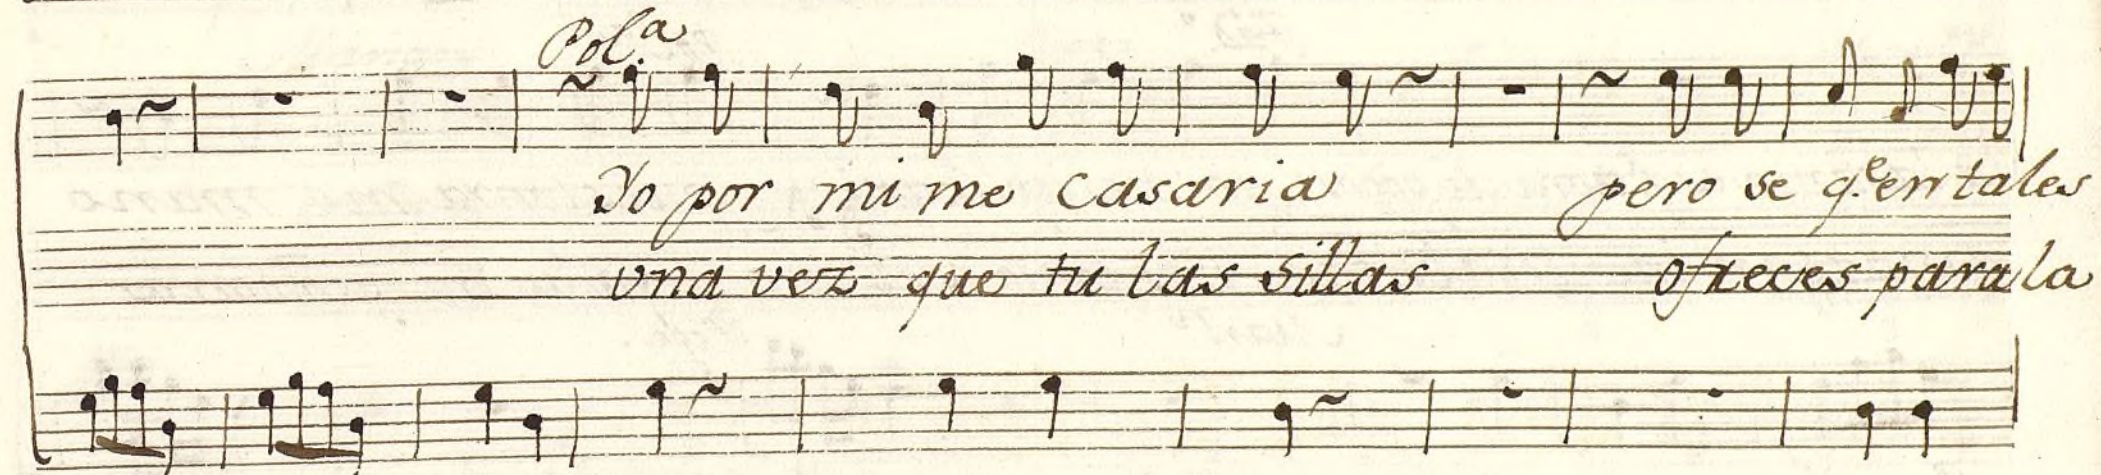 Pol.ª
Yo por mi me Casaria pero se q.e en tales
vna vez que tu las sillas ofreces para la